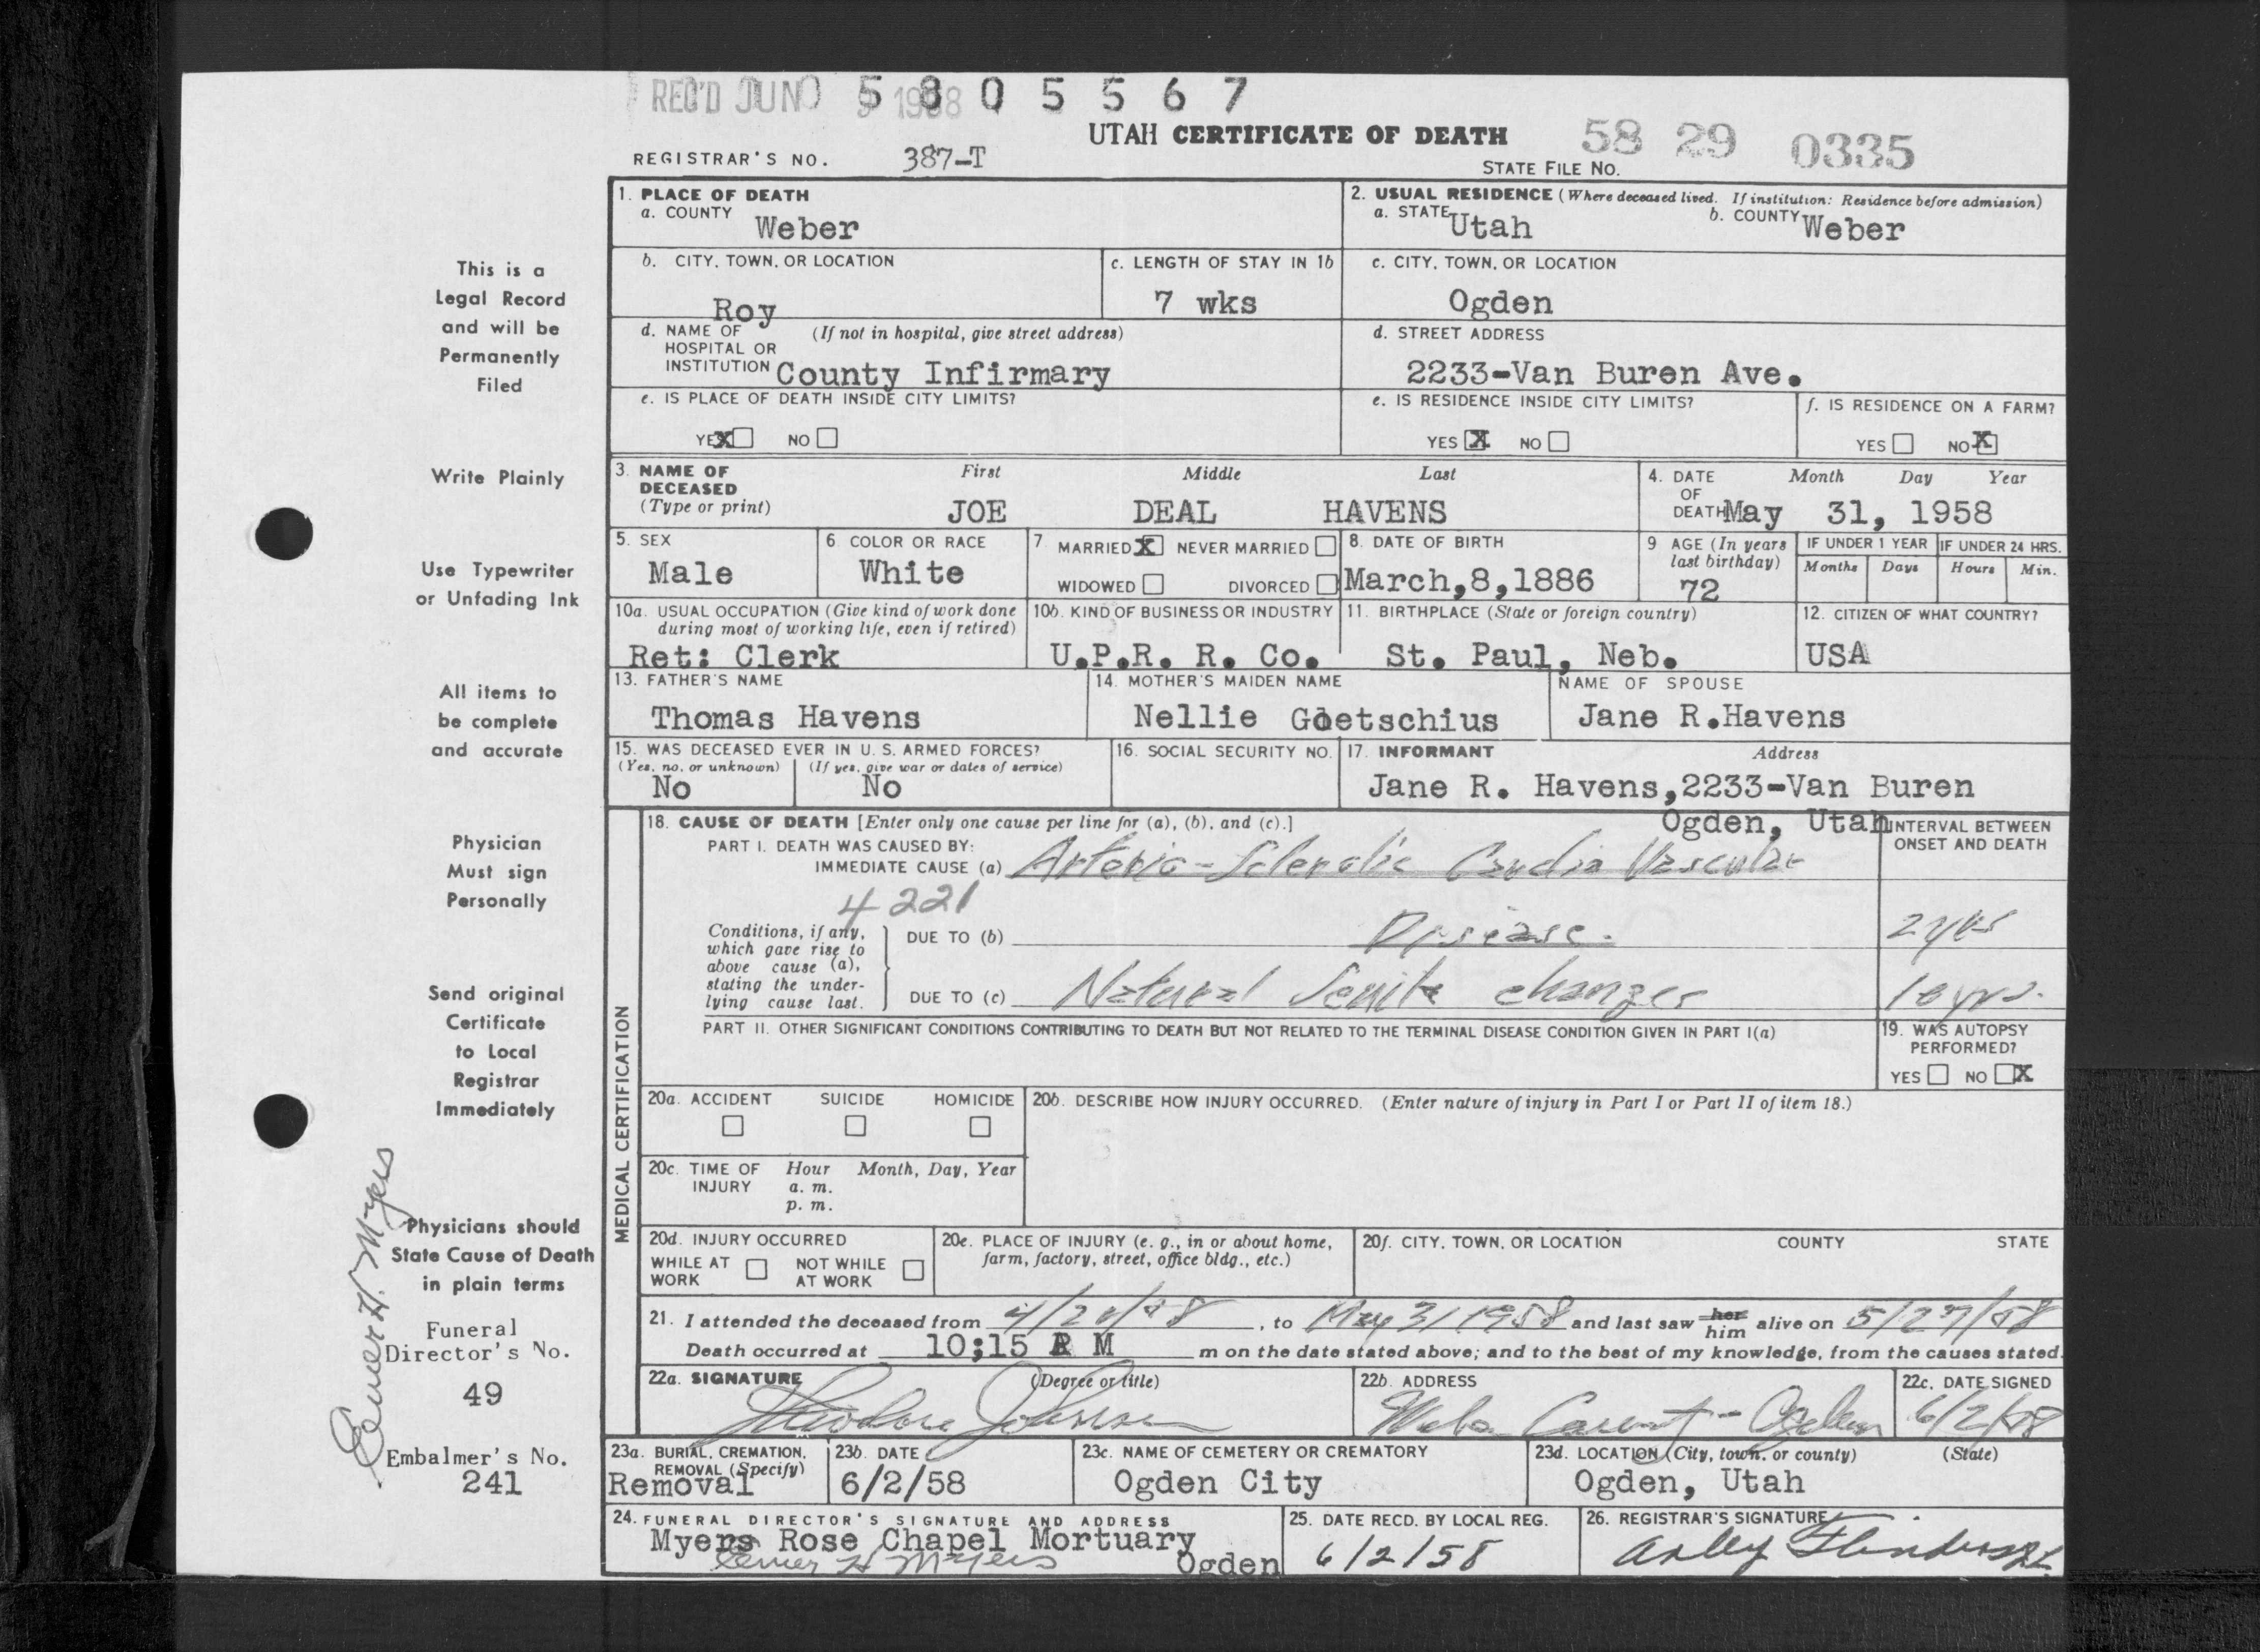 REC'D JUN 1958 5805567
UTAH CERTIFICATE OF DEATH 58 29 0335
REGISTRAR'S NO. 387-T STATE FILE NO.
1. PLACE OF DEATH
a. COUNTY Weber
2. USUAL RESIDENCE (Where deceased lived. If institution: Residence before admission)
a. STATE Utah b. COUNTY Weber
b. CITY, TOWN, OR LOCATION Roy
c. LENGTH OF STAY IN 1b 7 wks
c. CITY, TOWN, OR LOCATION Ogden
d. NAME OF (If not in hospital, give street address)
HOSPITAL OR
INSTITUTION County Infirmary
d. STREET ADDRESS
2233-Van Buren Ave.
e. IS PLACE OF DEATH INSIDE CITY LIMITS?
YES X NO
e. IS RESIDENCE INSIDE CITY LIMITS?
YES X NO
f. IS RESIDENCE ON A FARM?
YES NO X
3. NAME OF DECEASED (Type or print)
First Middle Last
JOE DEAL HAVENS
4. DATE OF DEATH Month Day Year
May 31, 1958
5. SEX Male
6. COLOR OR RACE White
7. MARRIED X NEVER MARRIED
WIDOWED DIVORCED
8. DATE OF BIRTH March,8,1886
9. AGE (In years last birthday) 72
IF UNDER 1 YEAR Months Days
IF UNDER 24 HRS. Hours Min.
10a. USUAL OCCUPATION (Give kind of work done
during most of working life, even if retired)
Ret: Clerk
10b. KIND OF BUSINESS OR INDUSTRY
U.P.R. R. Co.
11. BIRTHPLACE (State or foreign country)
St. Paul, Neb.
12. CITIZEN OF WHAT COUNTRY?
USA
13. FATHER'S NAME
Thomas Havens
14. MOTHER'S MAIDEN NAME
Nellie Goetschius
NAME OF SPOUSE
Jane R.Havens
15. WAS DECEASED EVER IN U. S. ARMED FORCES?
(Yes, no, or unknown) (If yes, give war or dates of service)
No No
16. SOCIAL SECURITY NO.
17. INFORMANT Address
Jane R. Havens,2233-Van Buren
Ogden, Utah
MEDICAL CERTIFICATION
18. CAUSE OF DEATH [Enter only one cause per line for (a), (b), and (c).]
INTERVAL BETWEEN ONSET AND DEATH
PART I. DEATH WAS CAUSED BY:
IMMEDIATE CAUSE (a) Arterio-Sclerotic Cardio Vascular
4221
Conditions, if any,
which gave rise to
above cause (a),
stating the under-
lying cause last.
DUE TO (b) Disease. 2 yrs
DUE TO (c) Natural Senile changes 10 yrs.
PART II. OTHER SIGNIFICANT CONDITIONS CONTRIBUTING TO DEATH BUT NOT RELATED TO THE TERMINAL DISEASE CONDITION GIVEN IN PART I(a)
19. WAS AUTOPSY PERFORMED?
YES NO X
20a. ACCIDENT SUICIDE HOMICIDE
20b. DESCRIBE HOW INJURY OCCURRED. (Enter nature of injury in Part I or Part II of item 18.)
20c. TIME OF INJURY Hour Month, Day, Year
a. m.
p. m.
20d. INJURY OCCURRED
WHILE AT WORK NOT WHILE AT WORK
20e. PLACE OF INJURY (e. g., in or about home,
farm, factory, street, office bldg., etc.)
20f. CITY, TOWN, OR LOCATION COUNTY STATE
21. I attended the deceased from 4/20/58, to May 31 1958 and last saw her him alive on 5/27/58
Death occurred at 10;15 M m on the date stated above; and to the best of my knowledge, from the causes stated.
22a. SIGNATURE (Degree or title)
Theodore Johnson
22b. ADDRESS
Ogden
22c. DATE SIGNED
6/2/58
23a. BURIAL, CREMATION,
REMOVAL (Specify)
Removal
23b. DATE
6/2/58
23c. NAME OF CEMETERY OR CREMATORY
Ogden City
23d. LOCATION (City, town, or county) (State)
Ogden, Utah
24. FUNERAL DIRECTOR'S SIGNATURE AND ADDRESS
Myers Rose Chapel Mortuary
Elmer H Myers Ogden
25. DATE RECD. BY LOCAL REG.
6/2/58
26. REGISTRAR'S SIGNATURE
This is a
Legal Record
and will be
Permanently
Filed
Write Plainly
Use Typewriter
or Unfading Ink
All items to
be complete
and accurate
Physician
Must sign
Personally
Send original
Certificate
to Local
Registrar
Immediately
Physicians should
State Cause of Death
in plain terms
Funeral
Director's No.
49
Embalmer's No.
241
Elmer H. Myers